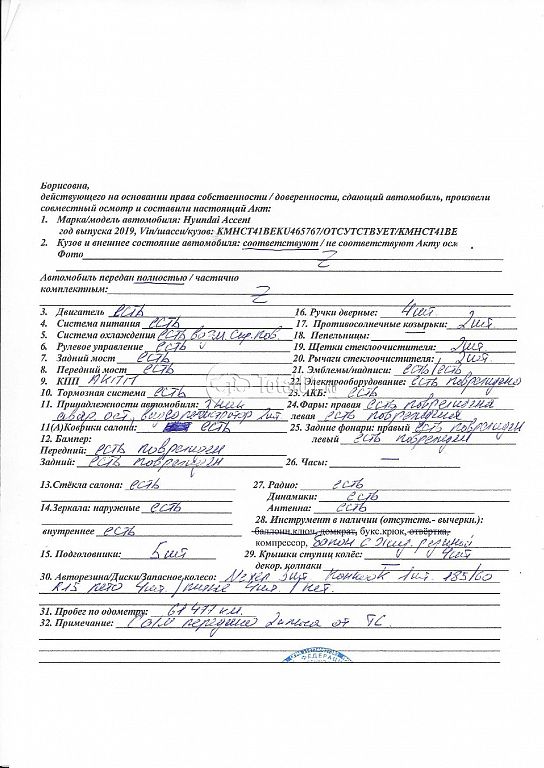 Борисовна,
действующего на основании права собственности / доверенности, сдающий автомобиль, произвели
совместный осмотр и составили настоящий Акт:
1. Марка/модель автомобиля: Hyundai Accent
год выпуска 2019, Vin/шасси/кузов: KMHCT41BEKU465767/ОТСУТСТВУЕТ/KMHCT41BE
2. Кузов и внешнее состояние автомобиля: соответствуют / не соответствуют Акту осм
Фото Z
Автомобиль передан полностью / частично
комплектным: Z
3. Двигатель есть
4. Система питания есть
5. Система охлаждения есть
6. Рулевое управление есть
7. Задний мост есть
8. Передний мост есть
9. КПП АКПП
10. Тормозная система есть
11. Принадлежности автомобиля:
11(А)Коврики салона: есть
12. Бампер:
Передний: есть поврежден
Задний: есть поврежден
13.Стёкла салона: есть
14.Зеркала: наружные есть
внутреннее есть
15. Подголовники: 5 шт
16. Ручки дверные: 4 шт.
17. Противосолнечные козырьки: 2 шт.
18. Пепельницы: —
19. Щетки стеклоочистителя: 2 шт
20. Рычаги стеклоочистителя: 2 шт.
21. Эмблемы/надписи: есть/есть
22. Электрооборудование: есть повреждено
23. АКБ: есть
24.Фары: правая есть повреждена
левая есть повреждена
25. Задние фонари: правый есть поврежден
левый есть поврежден
26. Часы: —
27. Радио: есть
Динамики: есть
Антенна: есть
28. Инструмент в наличии (отсутств.- вычеркн.):
баллонн.ключ, домкрат, букс.крюк, отвёртка,
компрессор,
29. Крышки ступиц колёс: 4 шт
декор. колпаки —
30. Авторезина/Диски/Запасное колесо: 3 шт 1 шт. 185/60
R15 лето 4 шт. / литые 4 шт. / нет.
31. Пробег по одометру: 61 477 км.
32. Примечание: передние от ТС.
ФЕДЕРАЦ